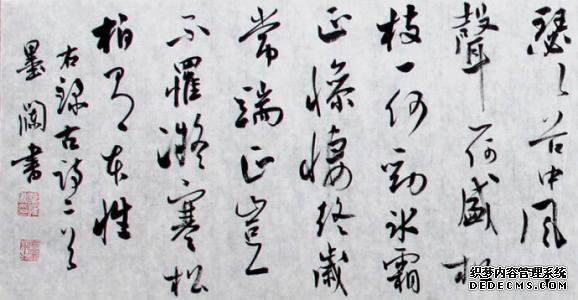 瑟々谷中風
聲一何盛松
枝一何勁冰霜
正慘悽終歲
常端正豈
不罹凝寒松
柏有本性
右録古詩一首
墨瀾書
织梦内容管理系统
DEDECMS.COM